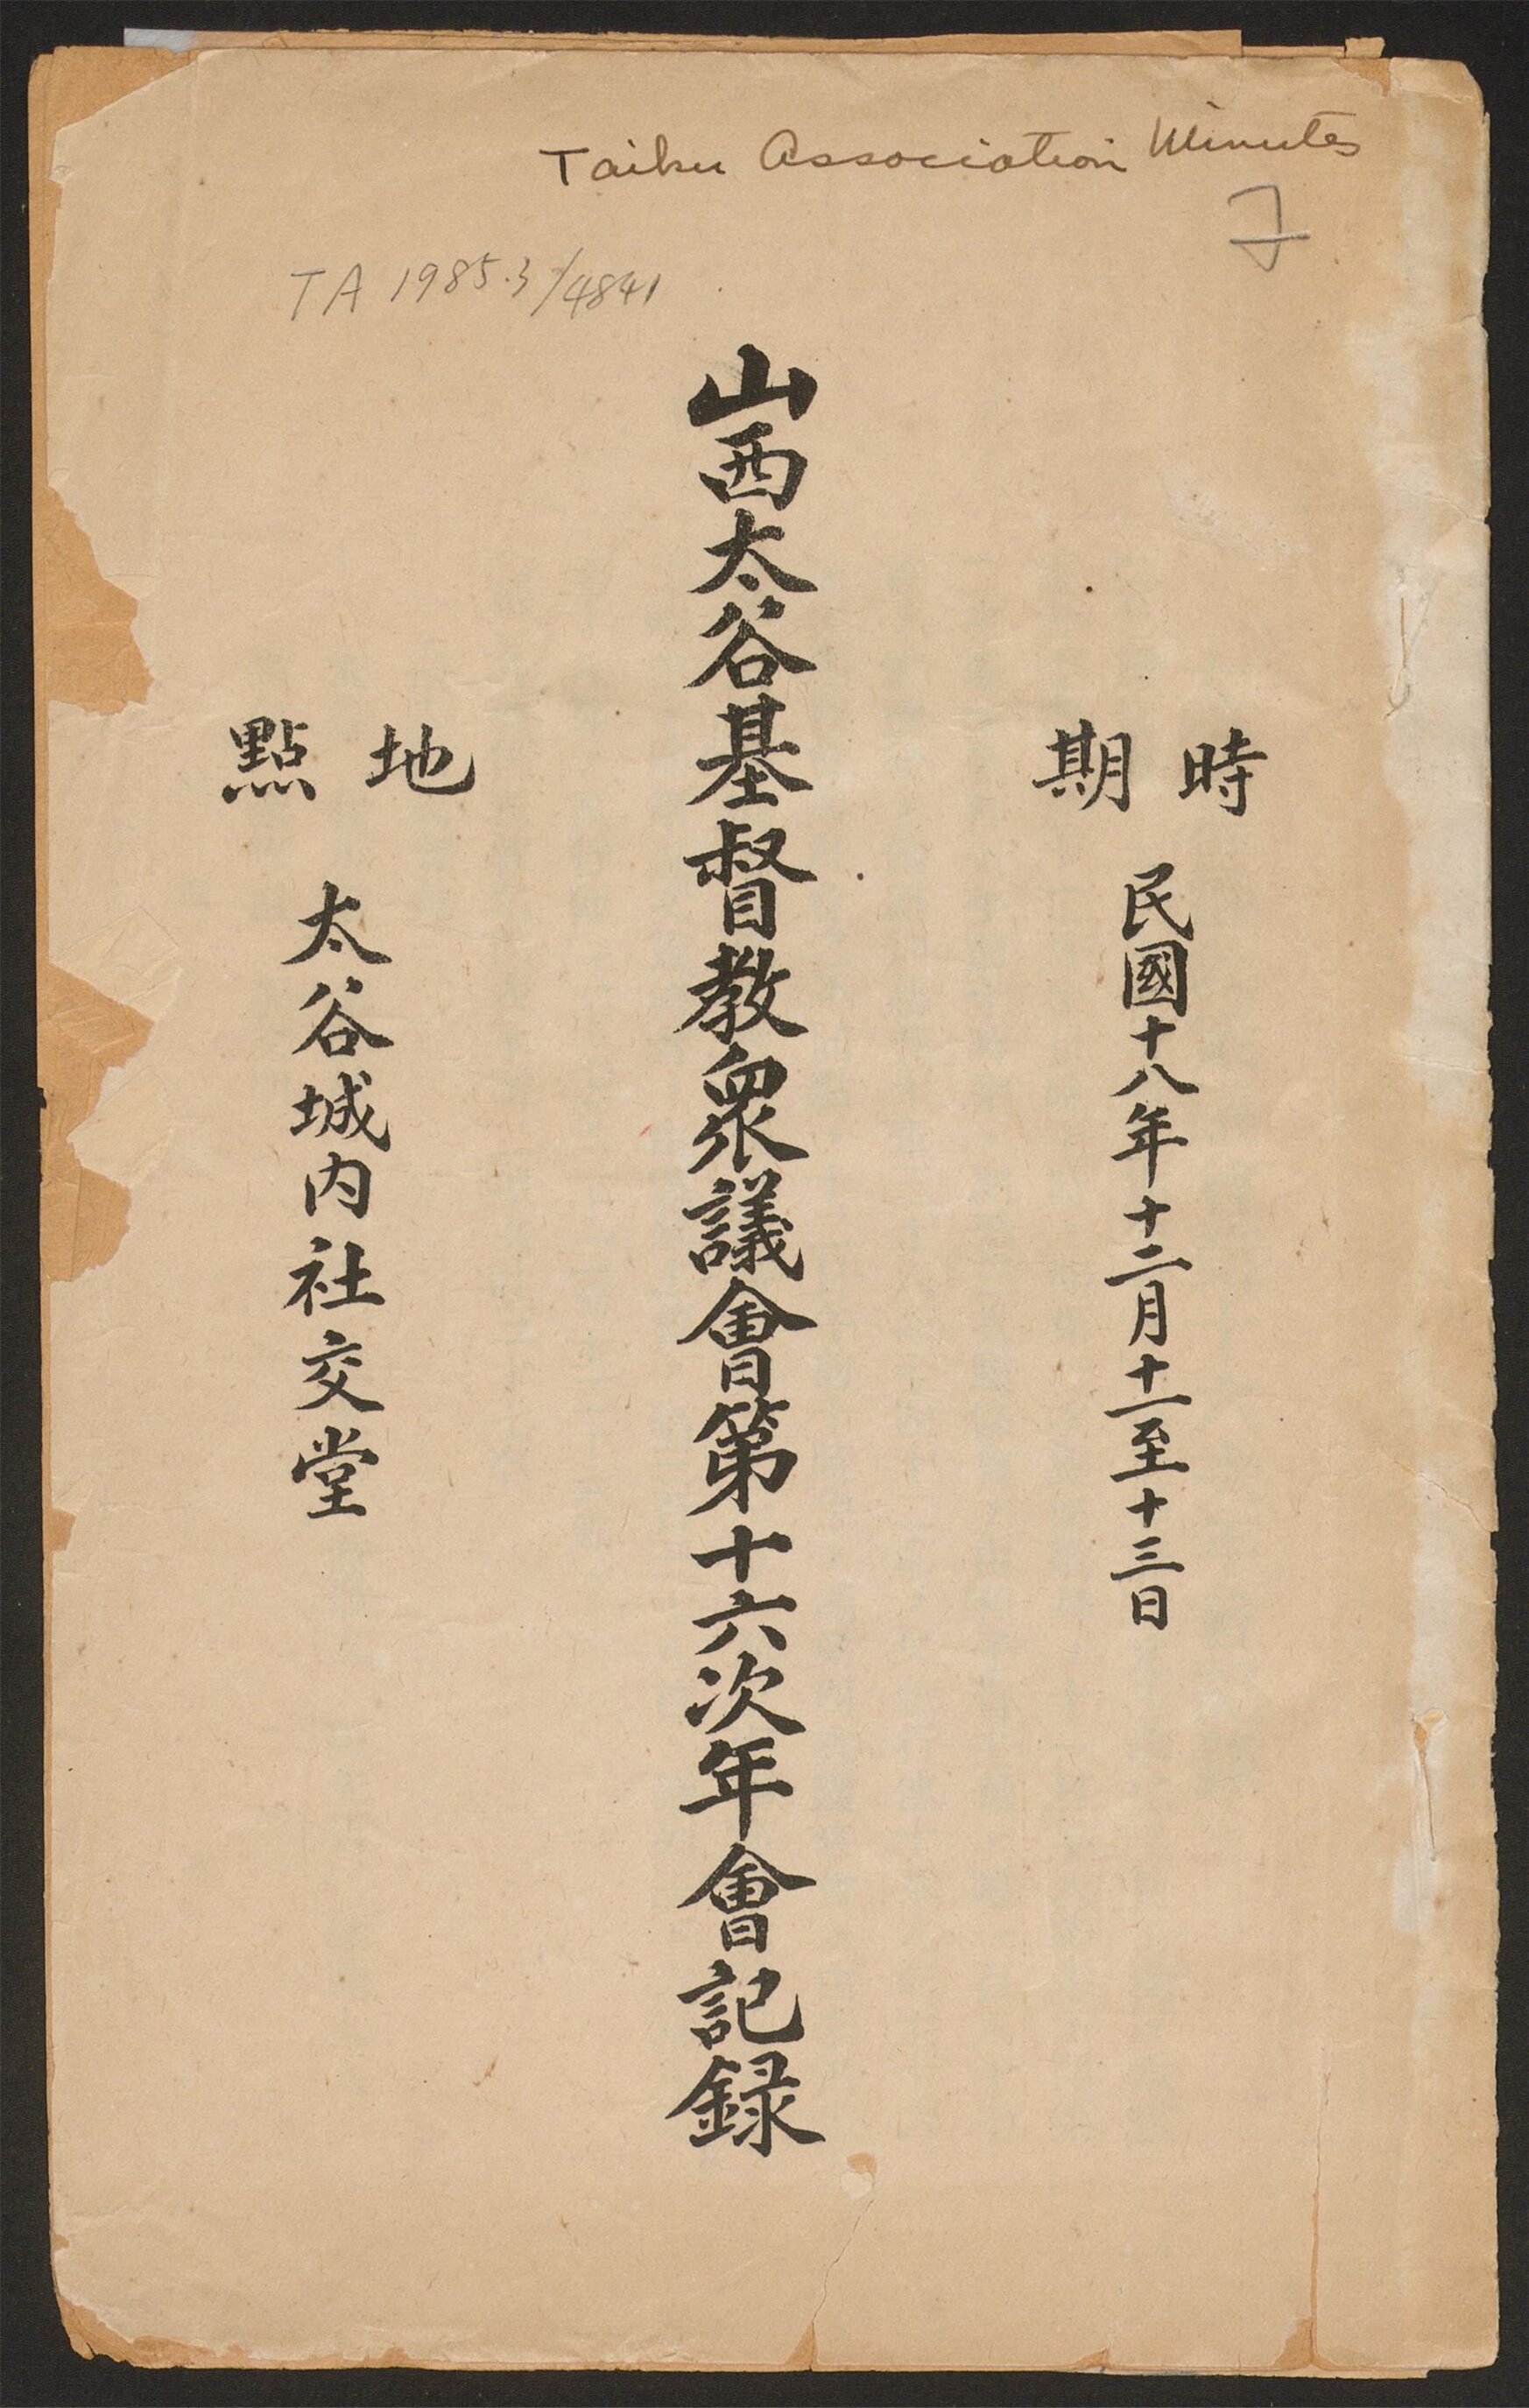 Taiku Association Minutes
TA 1985.3/4841
時期
民國十八年十二月十一至十三日
山西太谷基督教眾議會第十六次年會記録
地點
太谷城内社交堂